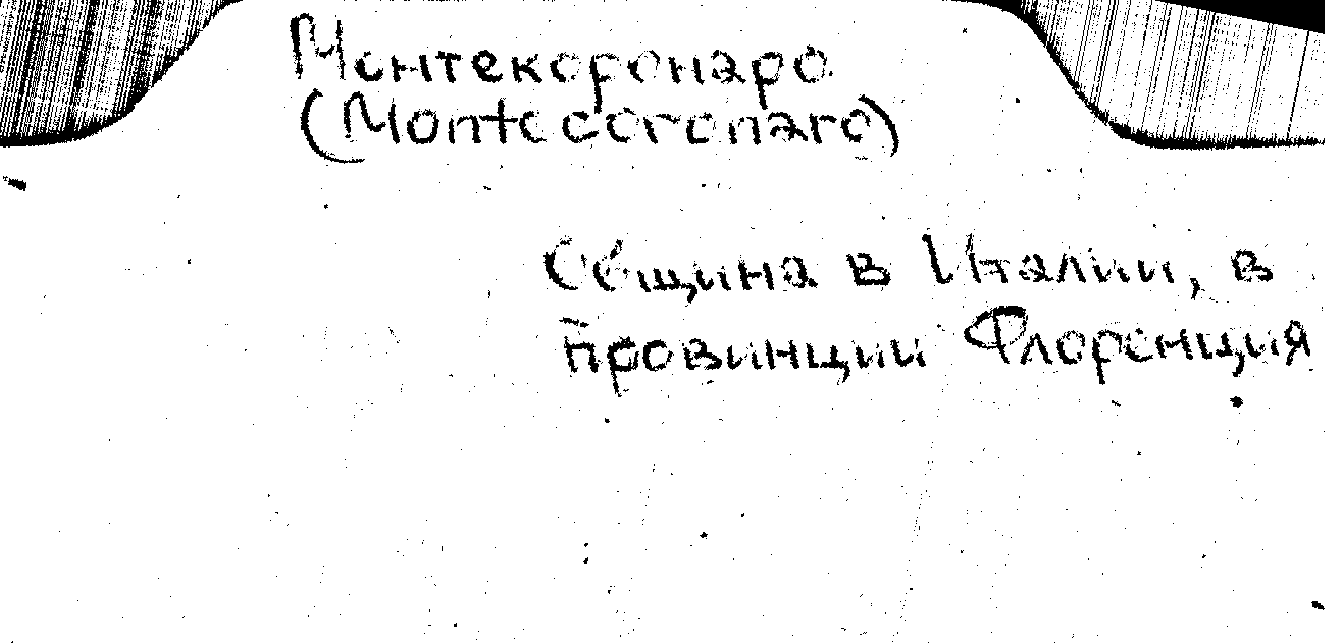 Монтекоронаро
(Montecoronaro)
Община в Италии, в
провинции Флоренция